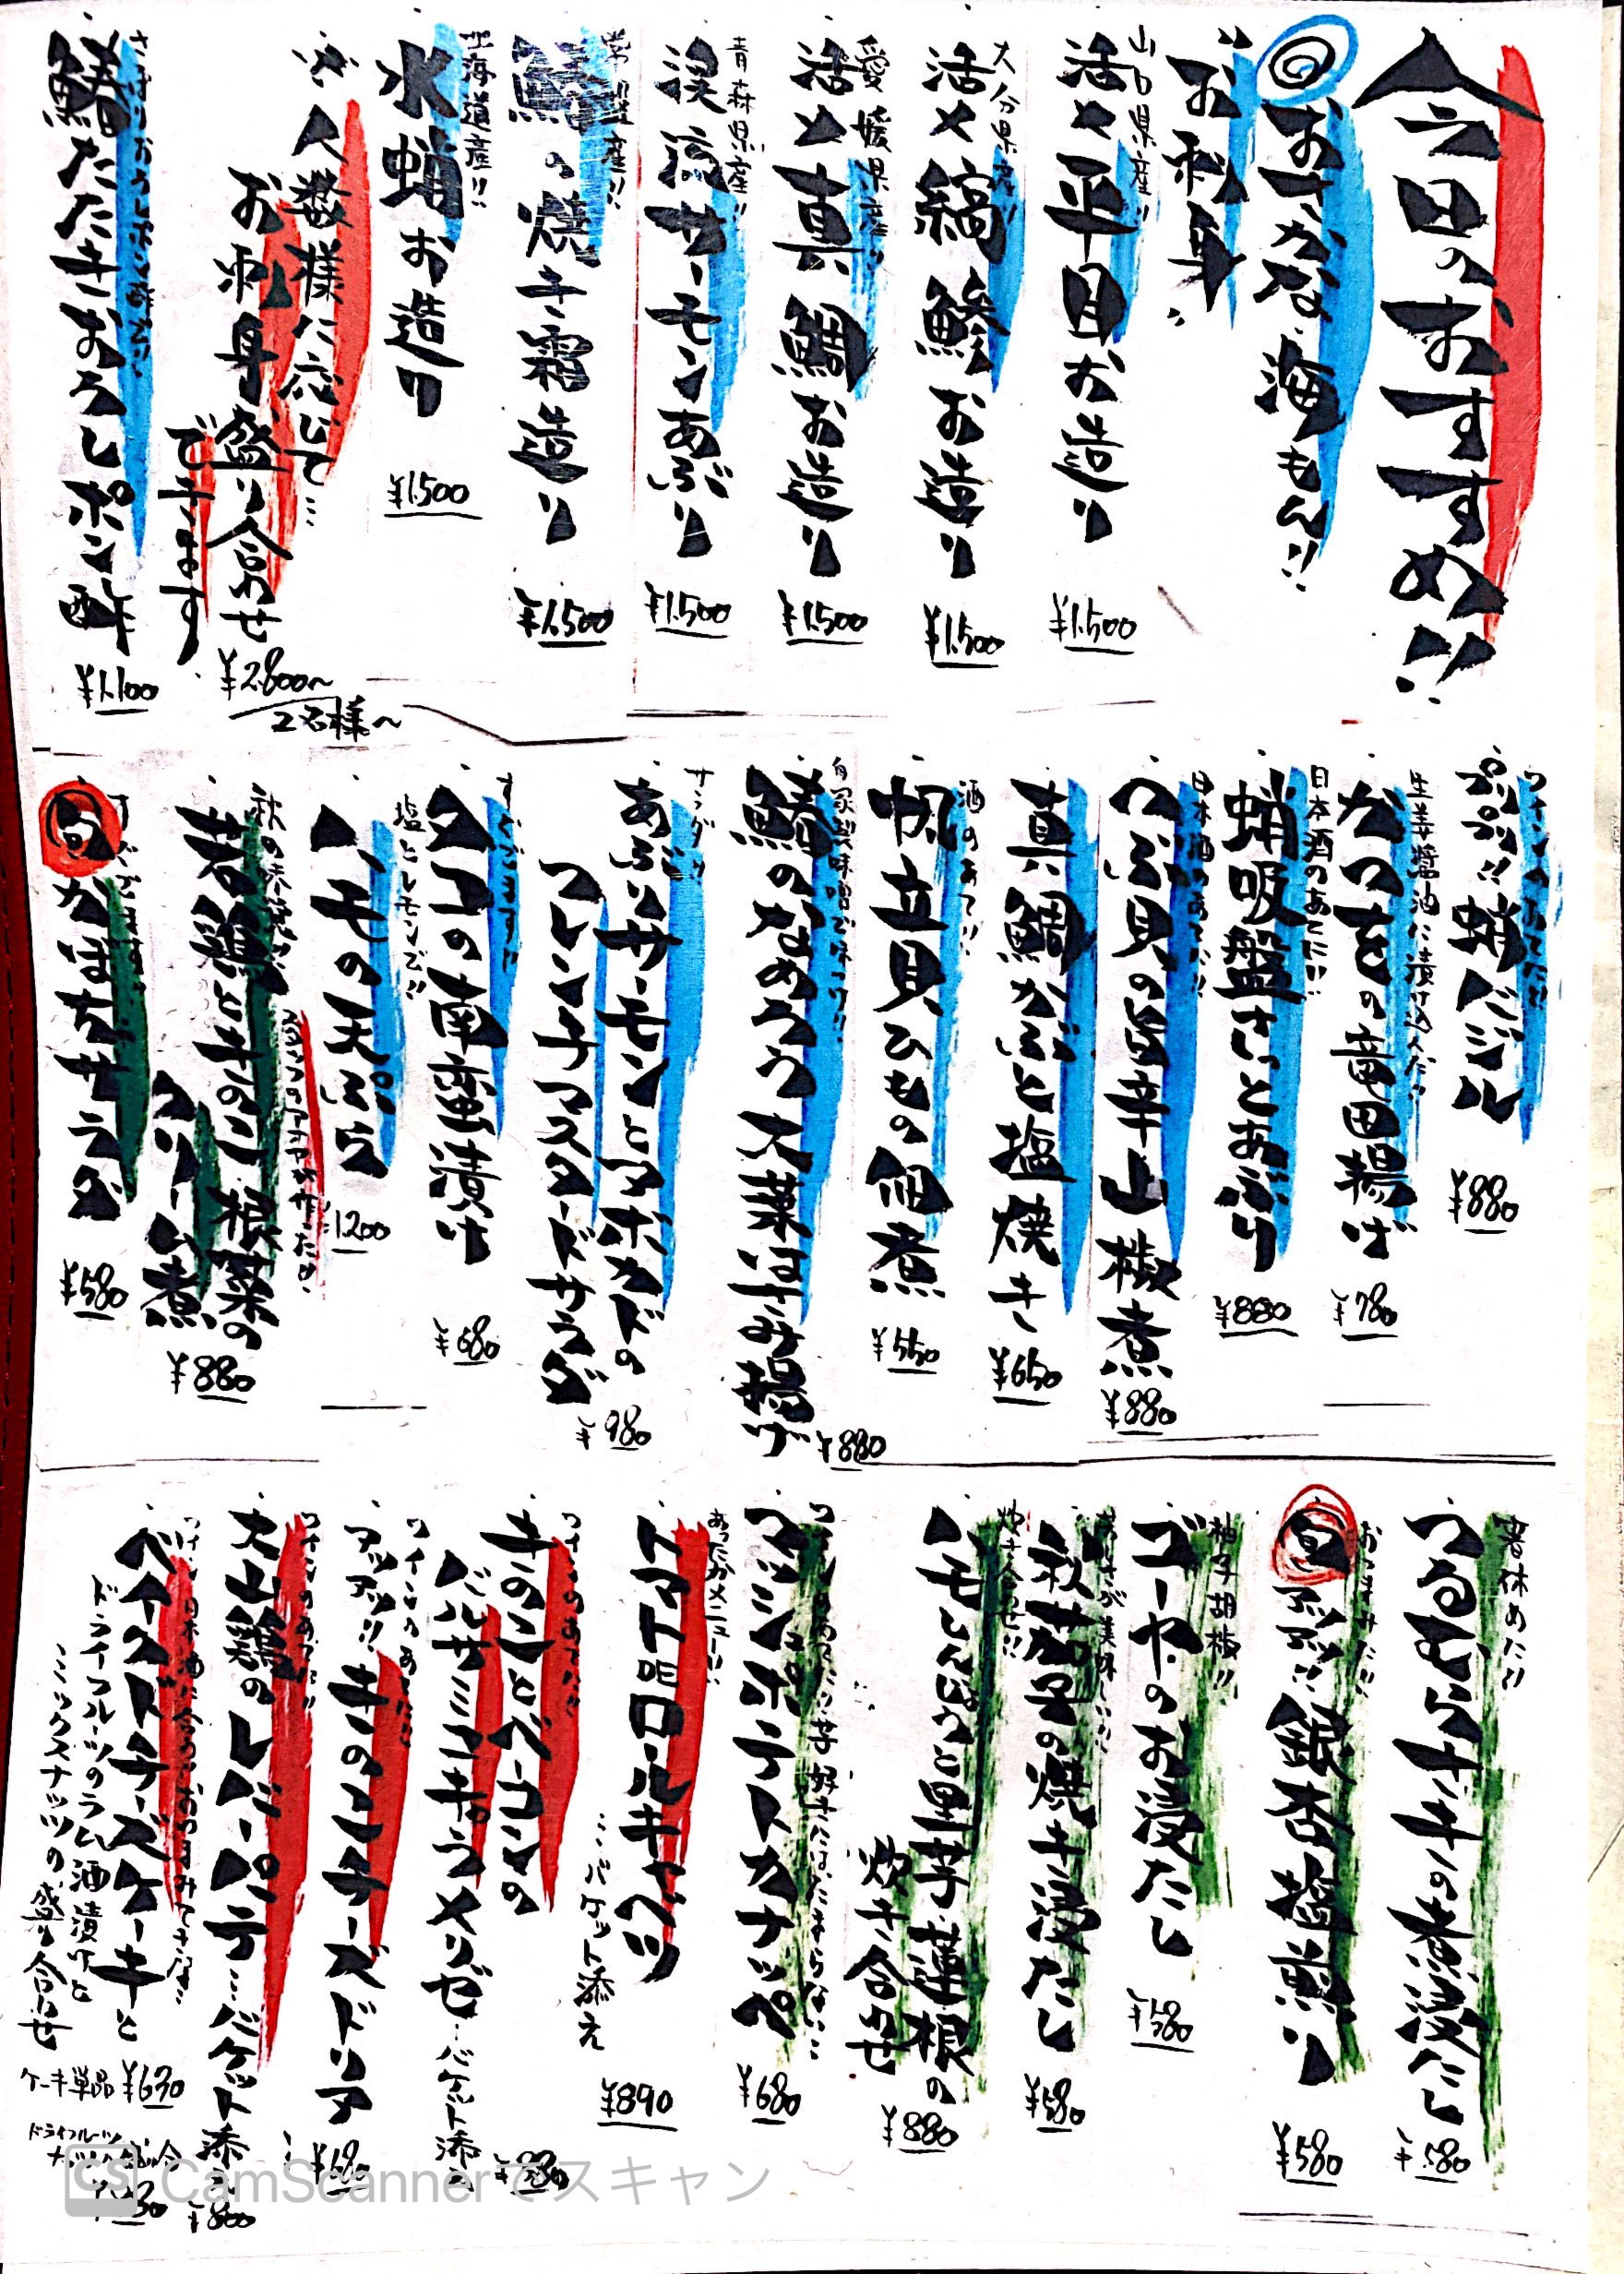 今日のおすすめ!!
おさかな・海もん!!
"お刺身"
山口県産!!
活〆平目お造り
¥1.500
大分県産!!
活〆縞鯵お造り
¥1.500
愛媛県産!!
活〆真鯛お造り
¥1.500
青森県産!!
渓流サーモンあぶり
¥1.500
産!!
鰆の焼き霜造り
¥1.500
北海道産!!
水蛸お造り
¥1.500
※人数様に応じて…
お刺身盛り合わせ
できます
¥2.800〜
2名様〜
鯵たたきおろしポン酢
¥1.100
ワインのあてに!!
プリプリ!!蛸バジル
¥880
生姜醤油に漬け込んだ!!
かつをの竜田揚げ
¥780
日本酒のあてに!!
蛸吸盤さっとあぶり
¥880
日本酒のあてに!!
つぶ貝の旨辛山椒煮
¥880
真鯛かぶと塩焼き
¥650
酒のあて!!
帆立貝ひもの佃煮
¥550
自家製味噌で味つけ!!
鯵のなめろう大葉はさみ揚げ
¥880
サラダ!!
あぶりサーモンとアボカドの
フレンチマスタードサラダ
¥980
すぐでます!!
タコの南蛮漬け
¥680
塩とレモンで!!
ハモの天ぷら
1200
秋の味覚!!
若鶏ときのこ、根菜の
クリーム煮
¥880
すぐでます!!
旬
かぼちゃサラダ
¥580
箸休めに!!
つるむらさきの煮浸たし
¥580
おつまみに!!
旬
銀杏塩煎り
¥580
柚子胡椒!!
ゴーヤのお浸たし
¥580
秋茄子の焼き浸たし
¥580
炊き合わせ!!
ハモしんじょうと里芋、蓮根の
炊き合わせ
¥880
ワインのあてに!!芋好きにはたまらない…
マッシュポテトカナッペ
¥680
あったかメニュー!!
トマト味ロールキャベツ
…バケット添え
¥890
ワインのあてに!!
きのことベーコンの
バルサミコキャラメリゼ…バケット添え
ワインのあてに!!
アツアツ!!きのこチーズドリア
¥680
ワインのあてに!!
大山鶏のレバーパテ…バケット添え
¥800
ワイン、日本酒に合う!!おつまみでさらに…
ベイクドチーズケーキと
ドライフルーツのラム酒漬けと
ミックスナッツの盛り合わせ
ケーキ単品 ¥630
ドライフルーツ
CS CamScannerでスキャン